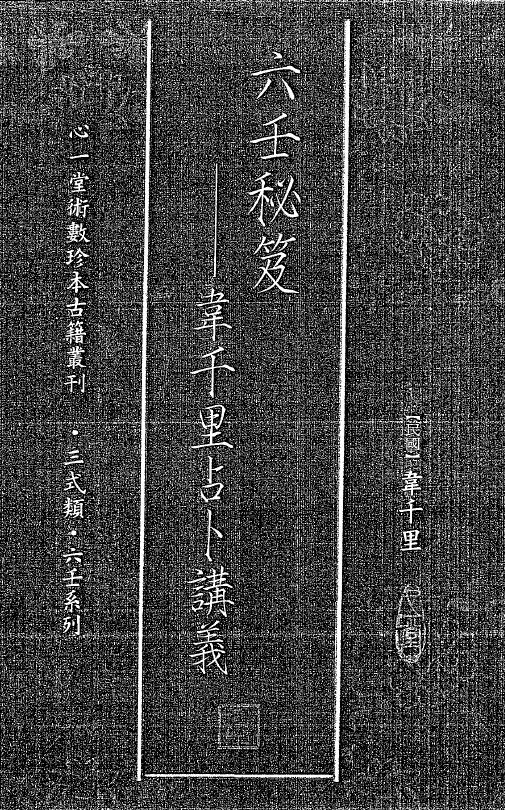 【民國】韋千里
六壬秘笈
——韋千里占卜講義
心一堂術數珍本古籍叢刊 ·三式類·六壬系列